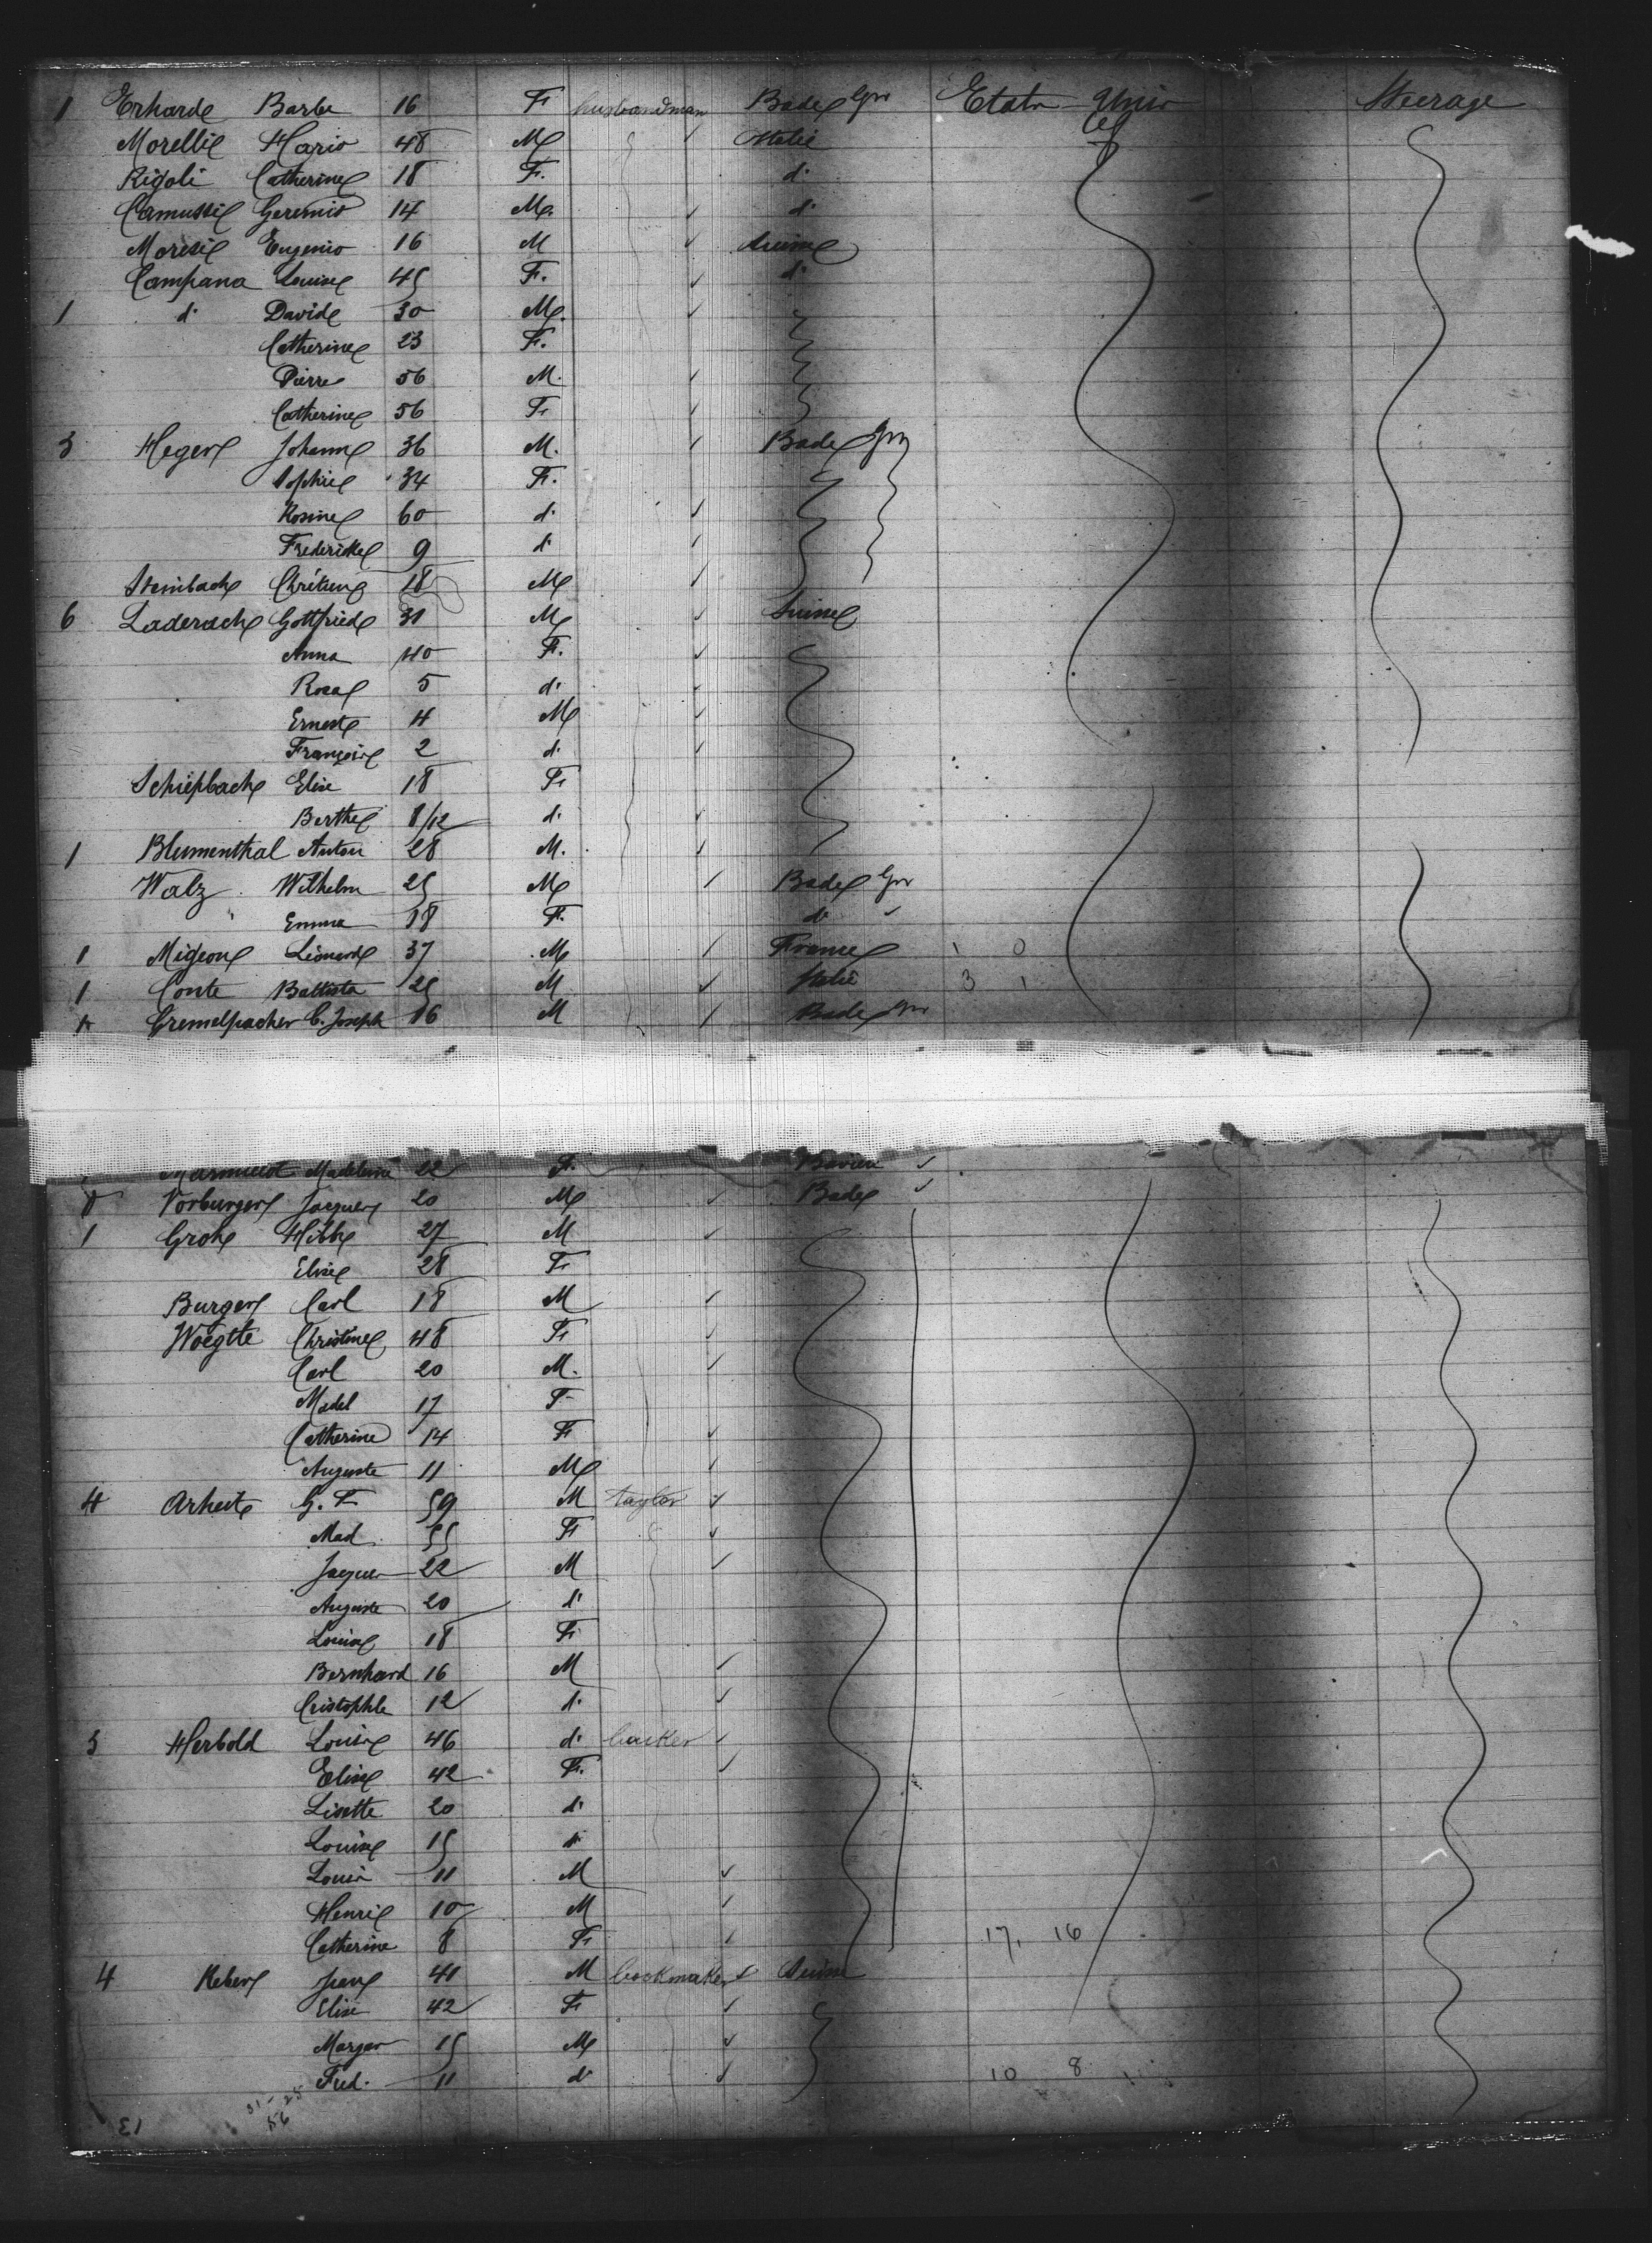 1 Erhard Barbe 16 F husbandman Bade Gr Etats Unis Steerage
Morelli Mario 48 M Italie
Rigoli Catherine 18 F. d°
Camussi Geremio 14 M. d°
Moresi Eugenio 16 M Suisse
Campana Louise 45 F. d°
1 d° David 30 M.
Catherine 23 F.
Pierre 56 M.
Catherine 56 F
3 Heger Johann 36 M. Bade Gr
Sophie 34 F.
Rosine 60 d°
Fredericke 9 d°
Steinbach Chrétien 18 M
6 Laderach Gottfried 31 M Suisse
Anna 40 F.
Rosa 5 d°
Ernest 4 M
François 2 d°
Schiepbach Elise 18 F
Berthe 8/12 d.
1 Blumenthal Anton 28 M.
Walz Wilhelm 25 M Bade Gr
Emma 18 F. d°
1 Migeon Léonard 37 M France 1 0
1 Conte Battista 25 M Italie 3 1
Gremelpacher C. Joseph 16 M Bade Gr
Madeleine 22 F. Bavière
Vorburger Jacques 20 M Bade
1 Groh 27 M
Elise 28 F
Burger Carl 18 M
Woegtte Christine 48 F
Carl 20 M.
Madel 17 F
Catherine 14 F
Auguste 11 M
4 Arheit G. F. 59 M taylor
Mad. 55 F
Jacques 22 M
Auguste 20 d°
Louise 18 F
Bernhard 16 M
Cristophle 12 d.
3 Herbold Louis 46 d° backer
Elise 42 F.
Lisette 20 d°
Louise 15 d°
Louis 11 M
Henri 10 M
Catherine 8 F 17, 16
4 Jean 41 M bookmaker Suisse
Elise 42 F
15 M
Fred. 11 d° 10 8